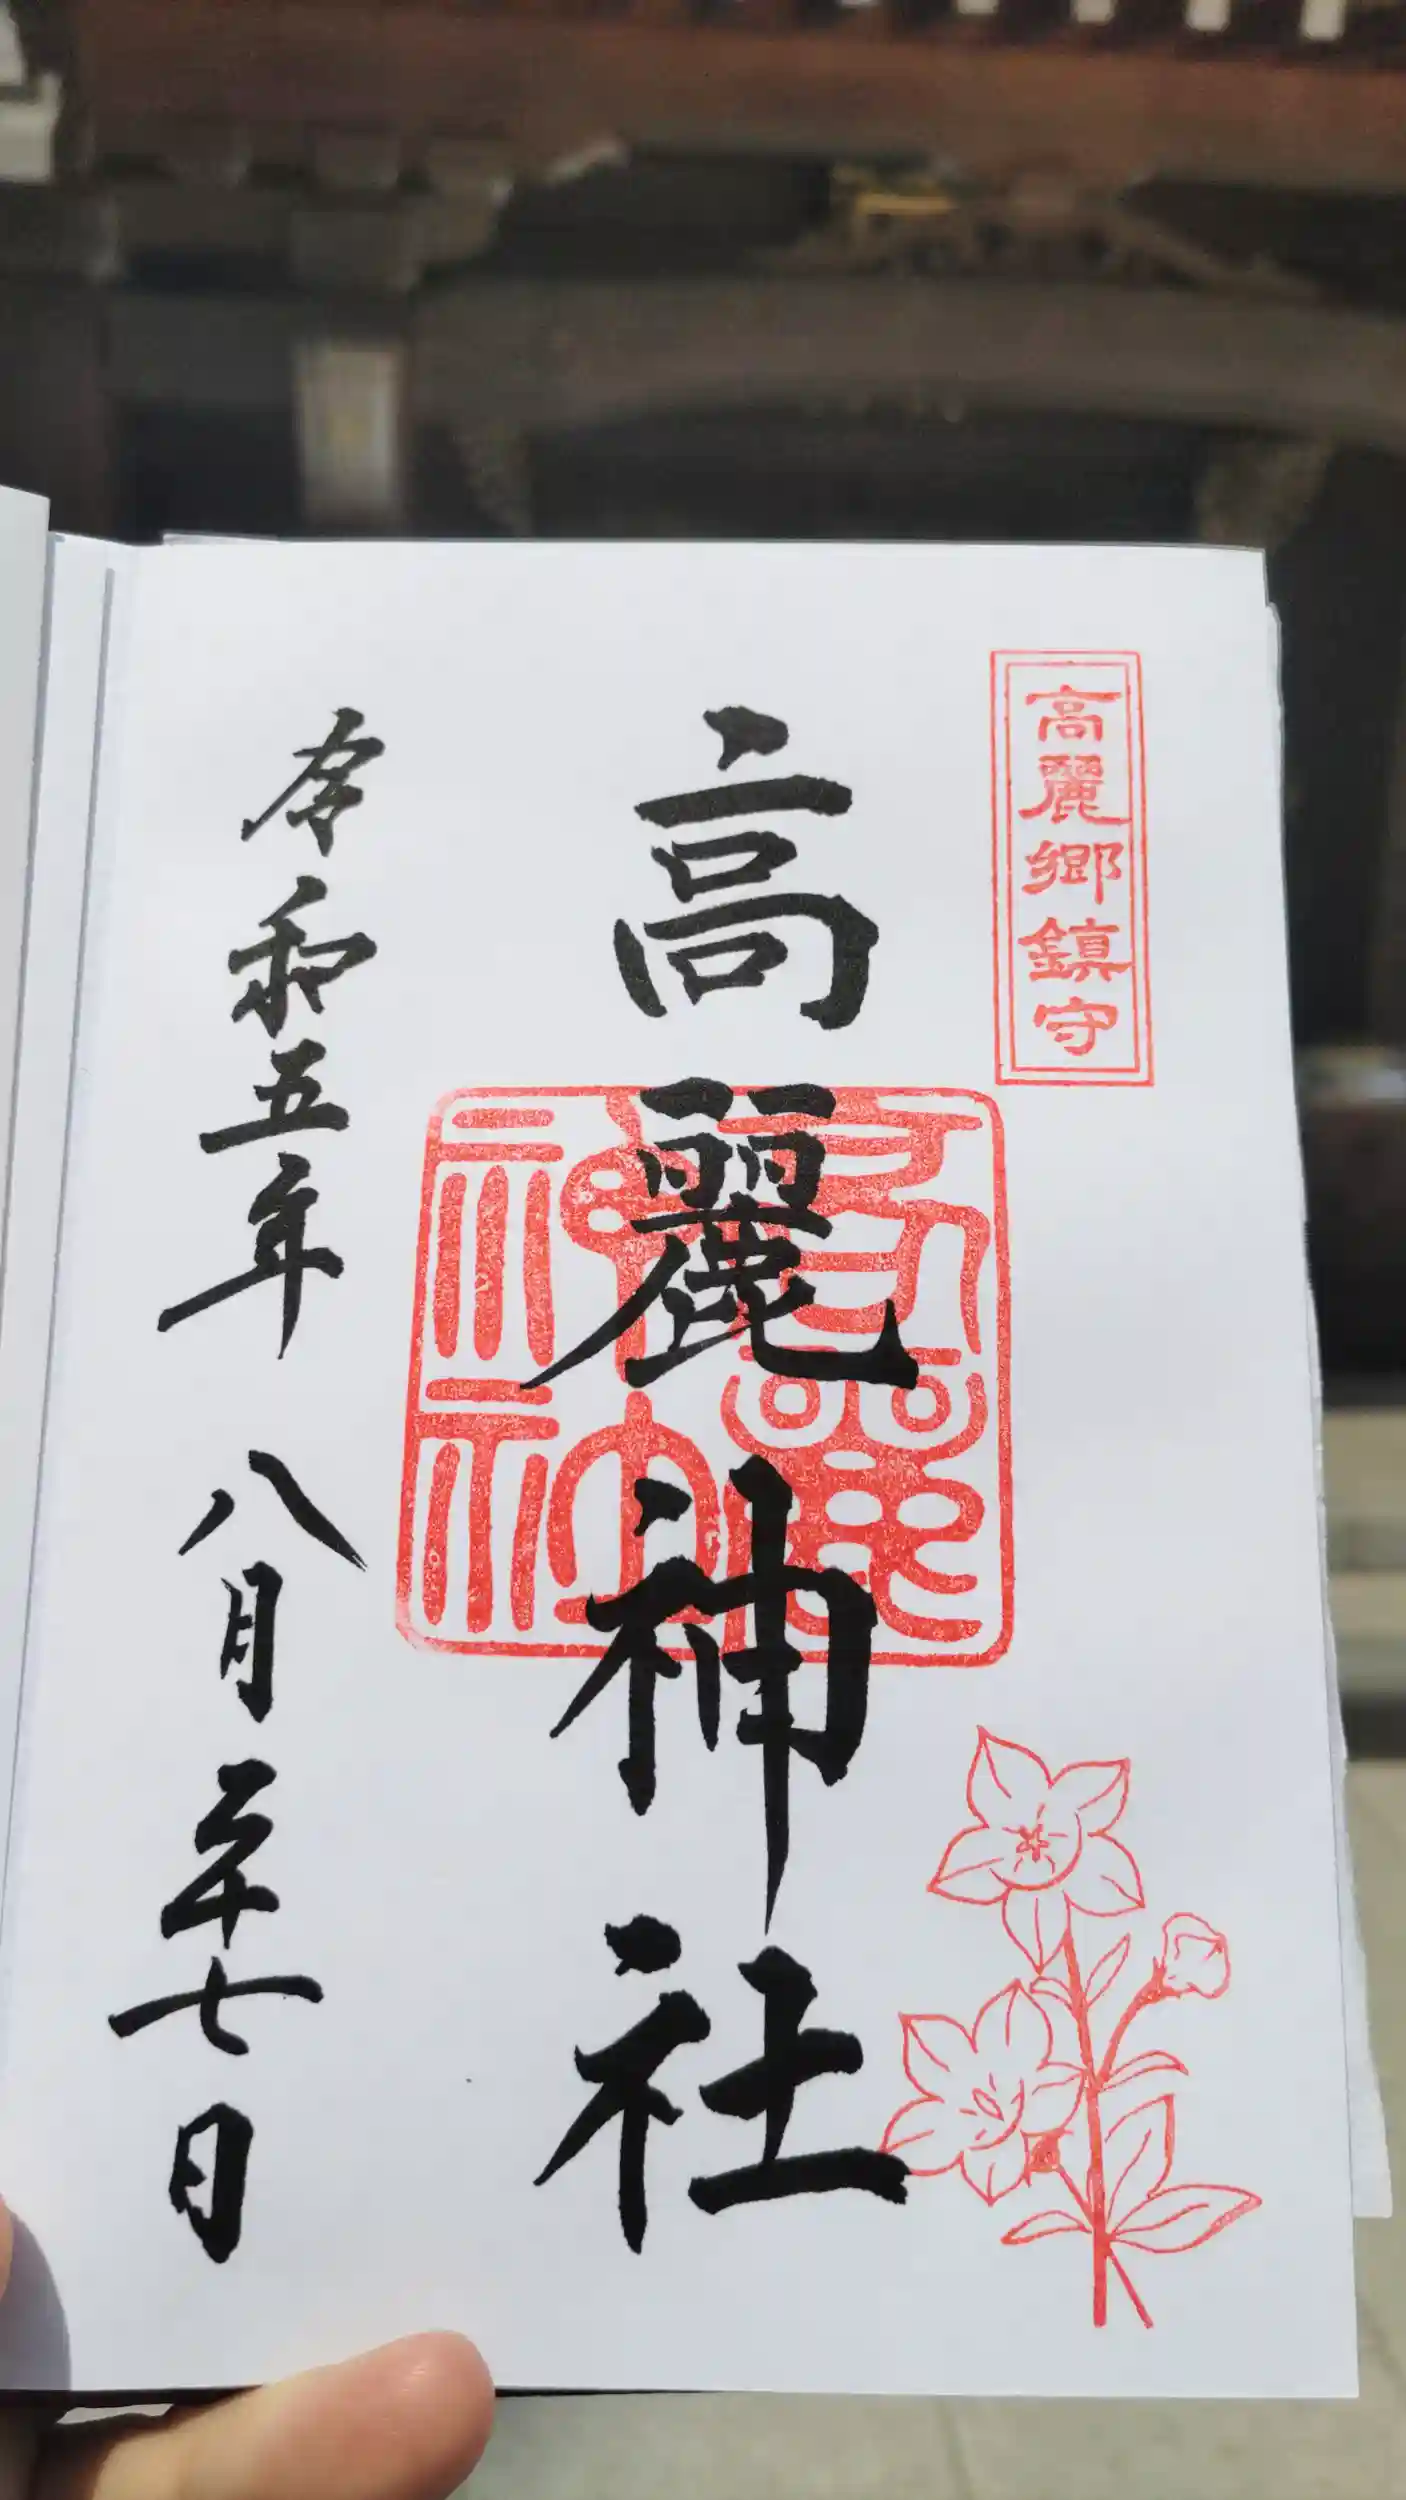 高麗郷鎮守
高麗神社
高麗神社
令和五年 八月二十七日